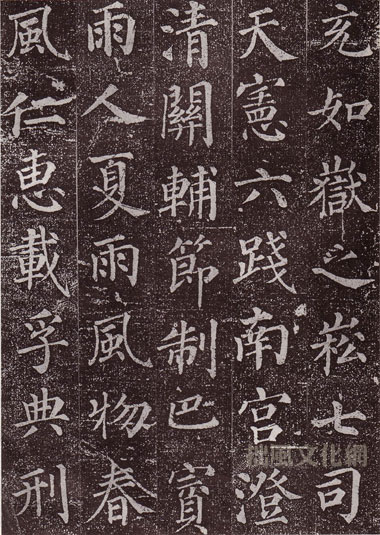 充如嶽之崧七司
天憲六踐南宮澄
清關輔節制巴賨
雨人夏雨風物春
風仁惠載孚典刑
風文化網